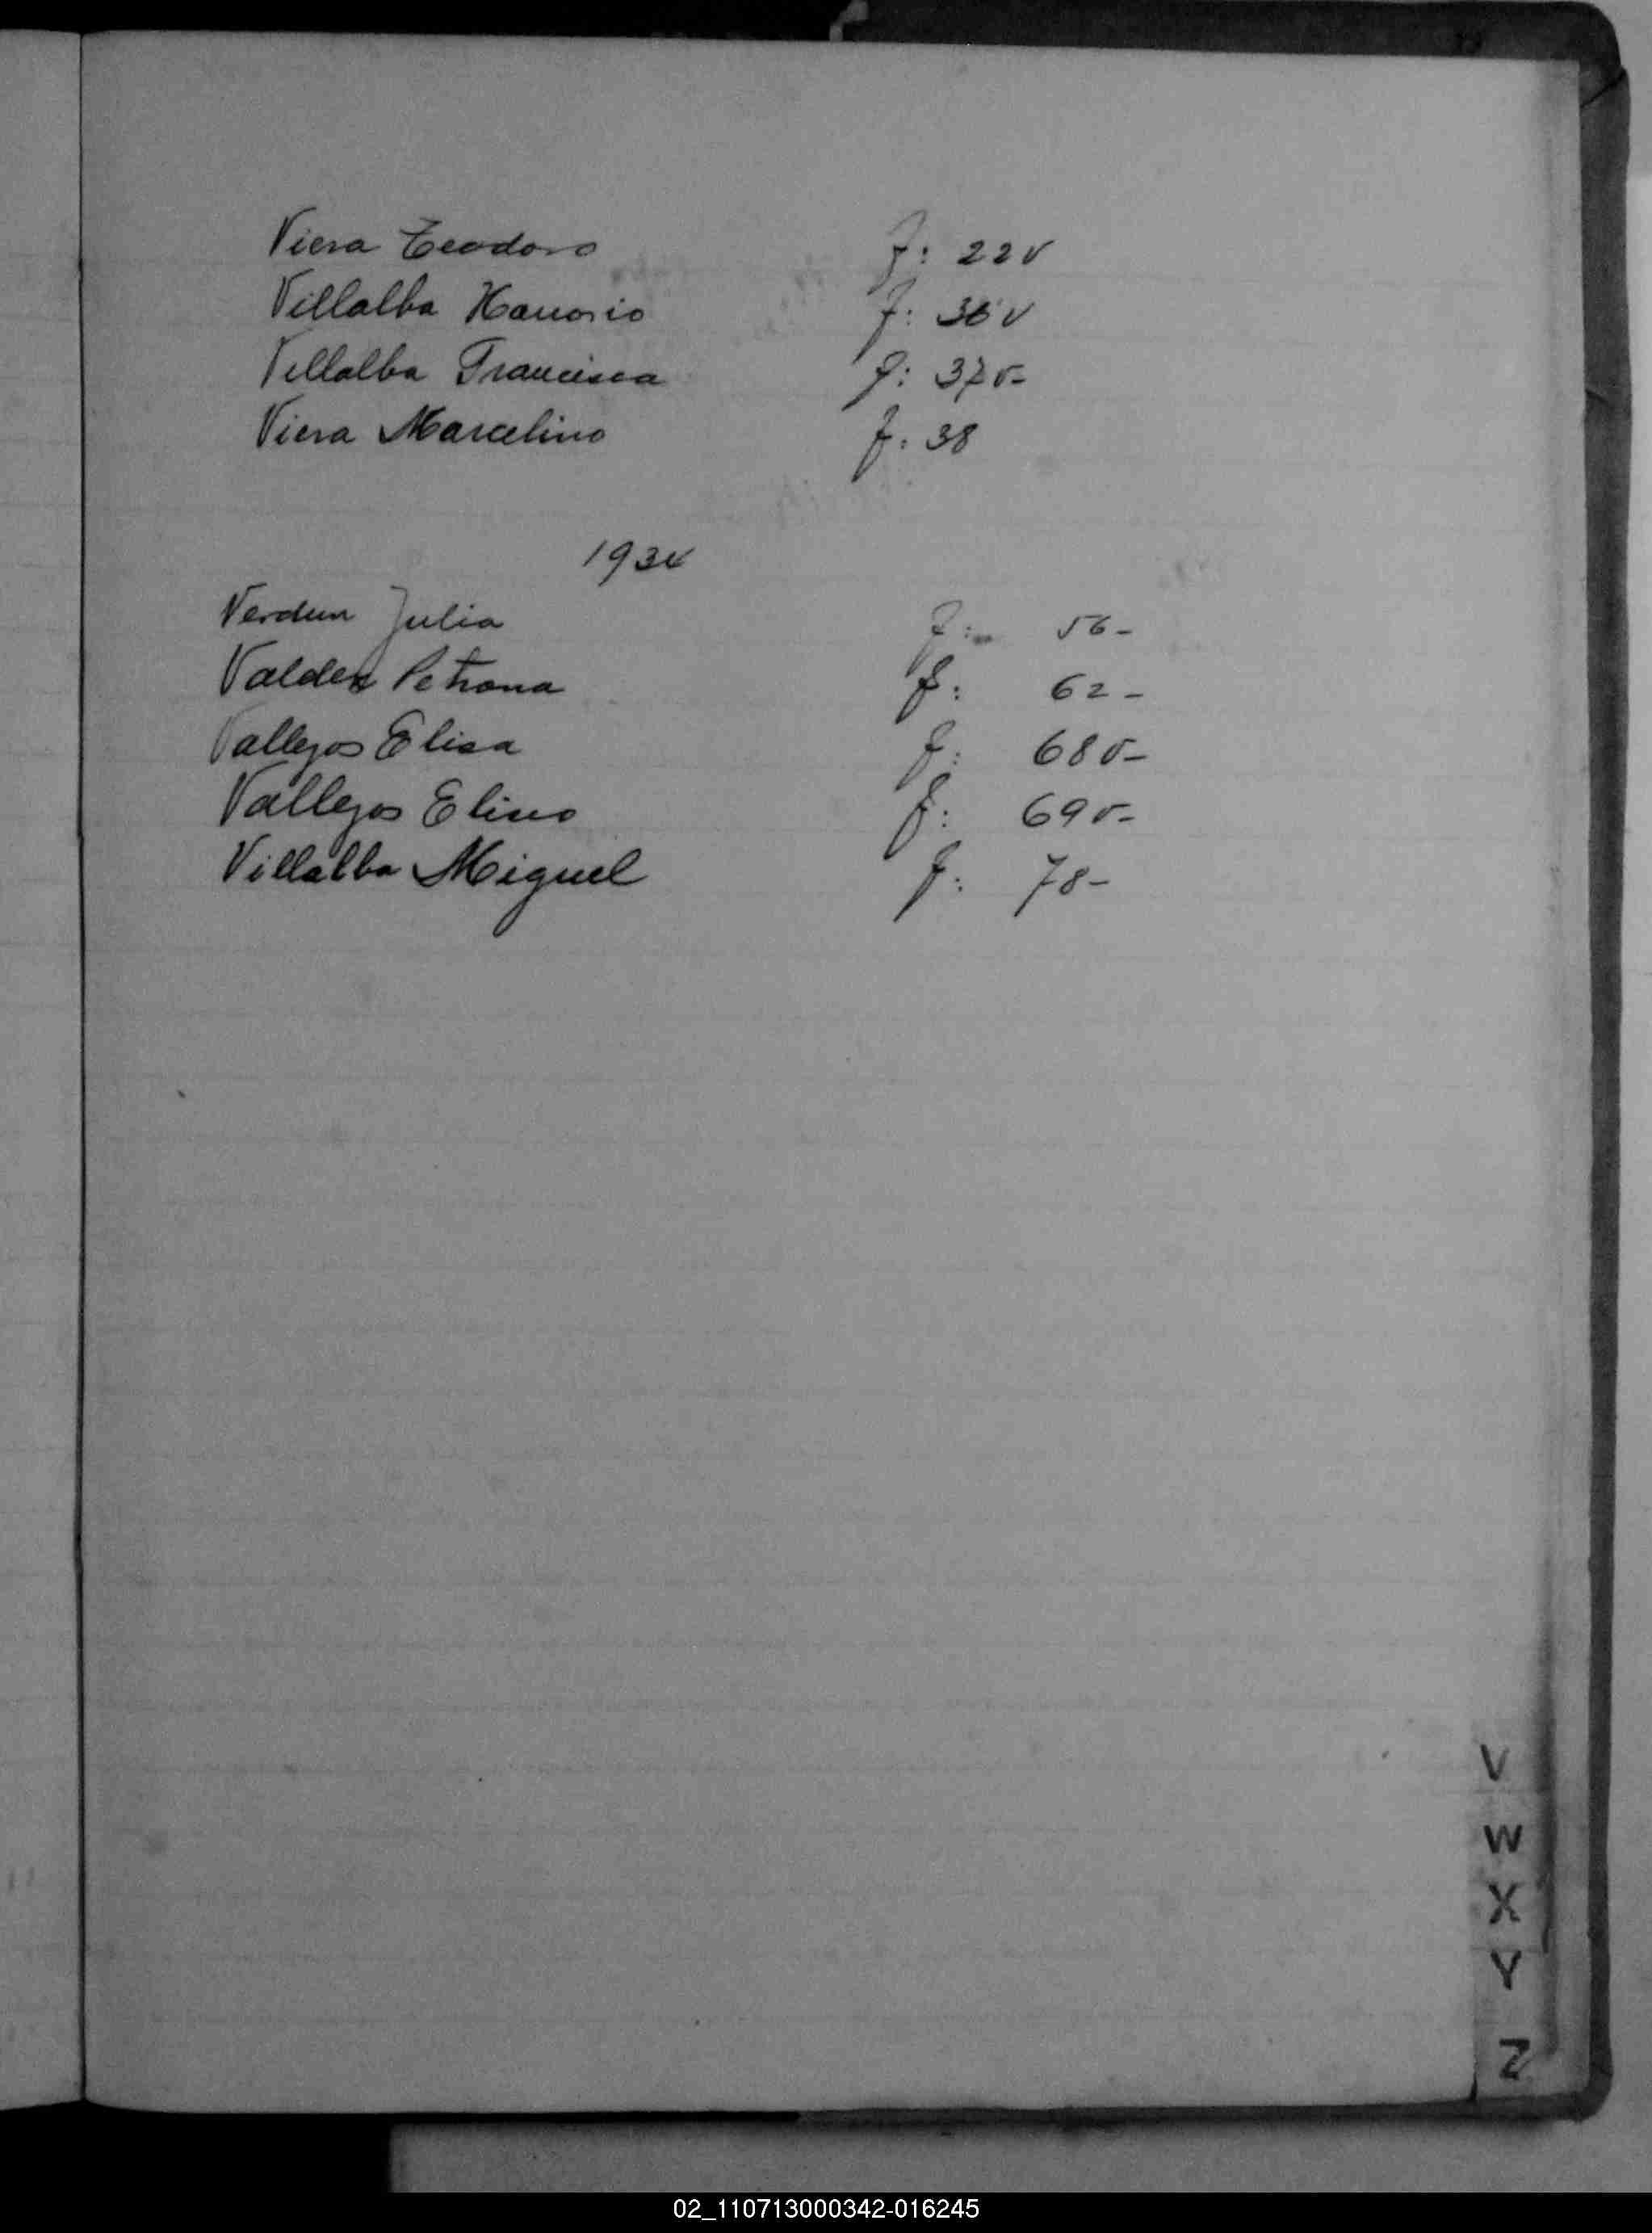 Viera Teodoro f: 22v
Villalba Hanorio f: 36v
Villalba Francisca f: 37v-
Viera Marcelino f: 38
1934
Verdun Julia f: 56-
Valdez Petrona f: 62-
Vallejos Elisa f: 68v-
Vallejos Eliseo f: 69v-
Villalba Miguel f: 78-
V
W
X
Y
Z
02_110713000342-016245